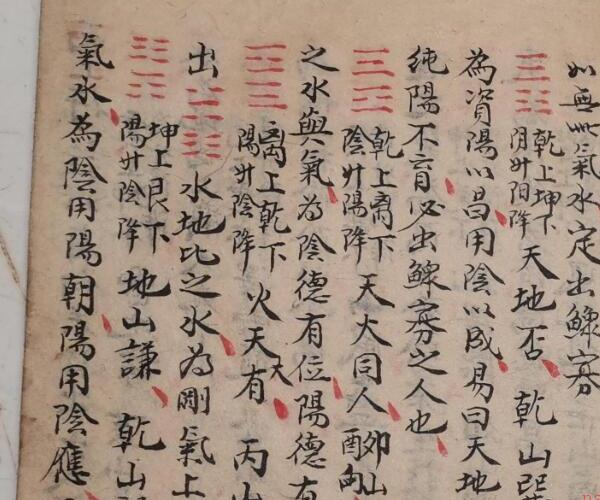 如無此氣水定出鰥寡
乾上坤下阴升阳降天地否乾山巽
為資陽以昌用陰以成易曰天地
純陽不育必出鰥寡之人也
乾上离下陰升陽降天火同人卯山酉向
之水與氣為陰德有位陽德有
離上乾下陽升陰降火天大有丙山
出水地比之水為剛氣上
坤上艮下陽升陰降地山謙乾山
氣水為陰用陽朝陽用陰應